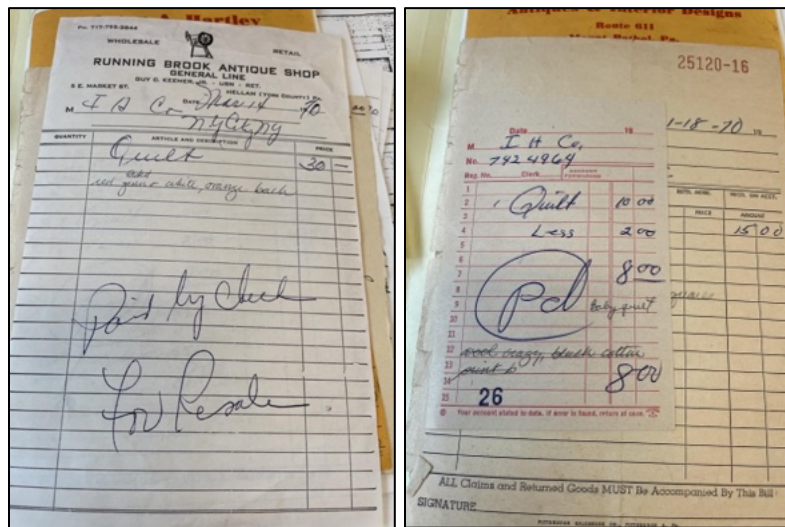 A. Hartley
Ph. 717-755-2844
WHOLESALE RETAIL
RUNNING BROOK ANTIQUE SHOP
GENERAL LINE
GUY C. KEEMER, JR. - USN - RET.
5 E. MARKET ST. HELLAM (YORK COUNTY) PA.
M I A Co Date Mar 14 1970
NYCity, NY
QUANTITY ARTICLE AND DESCRIPTION PRICE
Quilt 30 —
red green white, orange back
Paid by Check
For Resale
Antiques & Interior Designs
Route 611
Mount Bethel, Pa.
25120-16
1-18-70 19
Date 19
M I H Co,
No. 7424964
Reg. No. Clerk ACCOUNT FORWARDED
1
2 1 Quilt 10 00
3
4 Less 2 00
5
6
7 8 00
8 Pd
9 baby quilt
10
11
12 wool crazy, black cotton
13 print b
14 8 00
15 26
Your account stated to date. If error is found, return at once.
RETD. MDSE. RECD. ON ACCT.
PRICE AMOUNT
15 00
ALL Claims and Returned Goods MUST Be Accompanied By This Bill
SIGNATURE